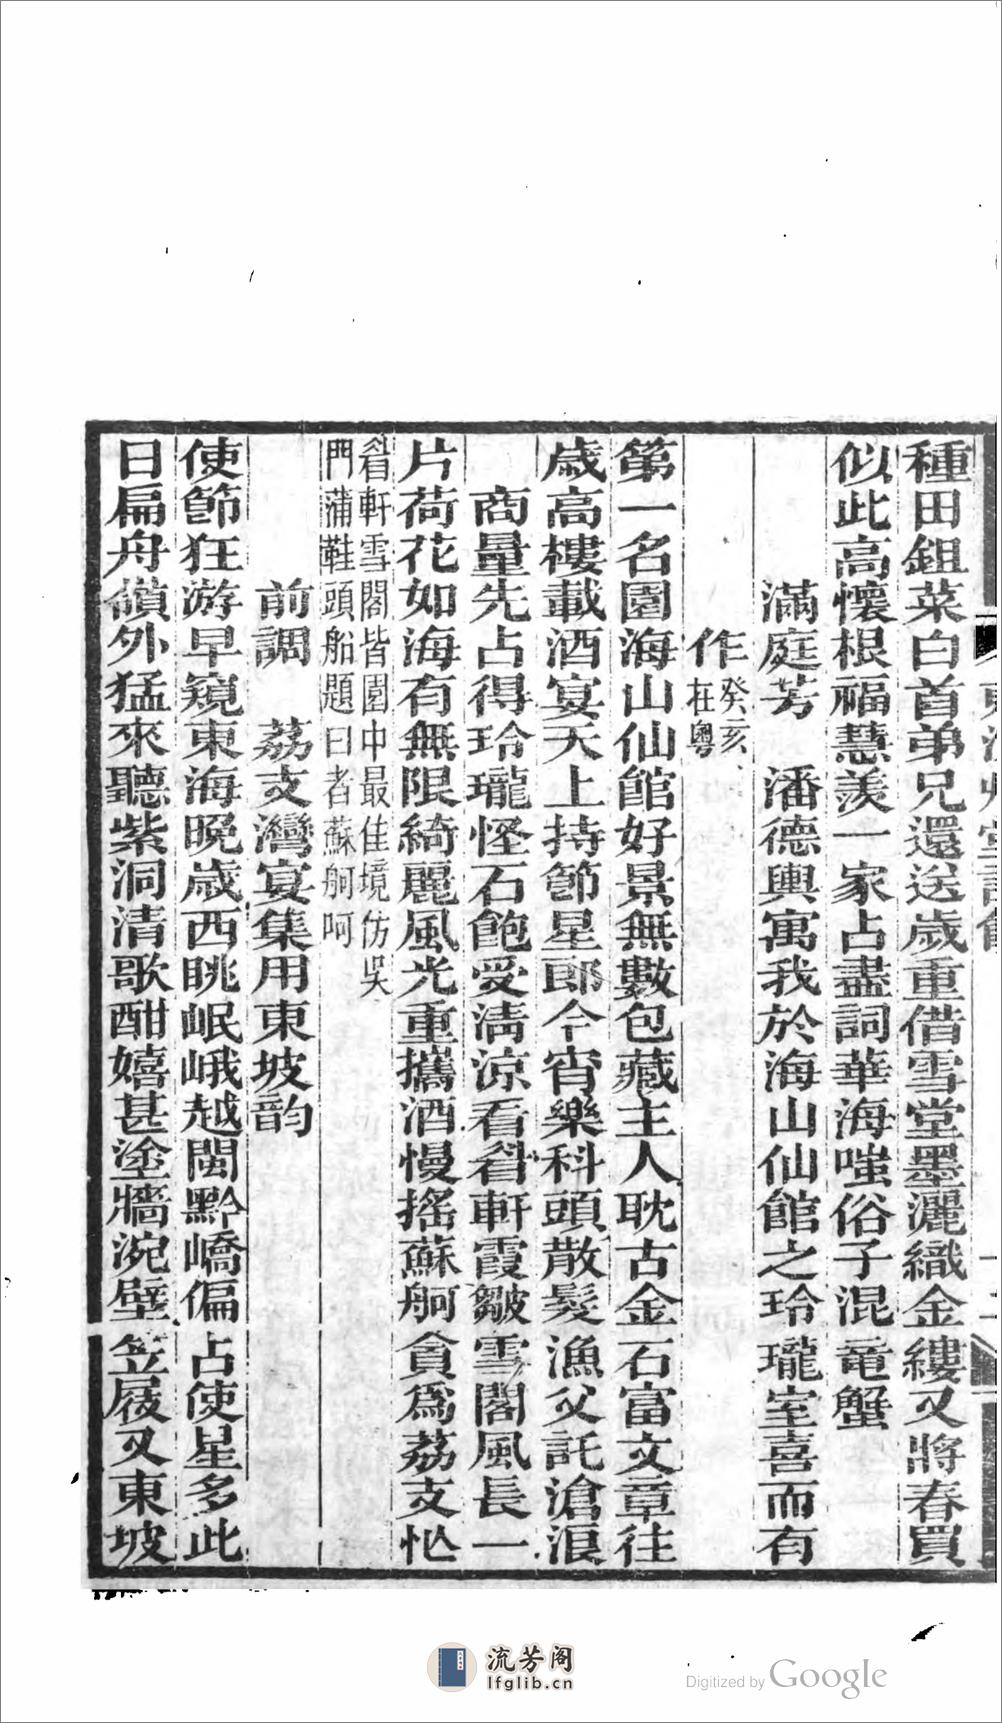 種田鉏菜白首弟兄還送歲重借雪堂墨灑織金縷又將春買
似此高懷根福慧羨一家占盡詞華海嗤俗子混竜蟹
滿庭芳 潘德輿寓我於海山仙館之玲瓏室喜而有
作癸亥在粵
第一名園海山仙館好景無數包藏主人耽古金石富文章往
歲高樓載酒宴天上持節星郎今宵樂科頭散髮漁父託滄浪
商量先占得玲瓏怪石飽受清涼看眢軒霞皺雪閣風長一
片荷花如海有無限綺麗風光重攜酒慢搖蘇舸貪為荔支忙
眢軒雪閣皆園中最佳境仿吳
門蒲鞋頭船題曰者蘇舸呵
前調 荔支灣宴集用東坡韵
使節狂游早窺東海晚歲西眺岷峨越閩黔嶠偏占使星多此
日扁舟嶺外猛來聽紫洞清歌酣嬉甚塗牆涴壁笠屐又東坡
流芳阁
lfglib.cn
Digitized by Google